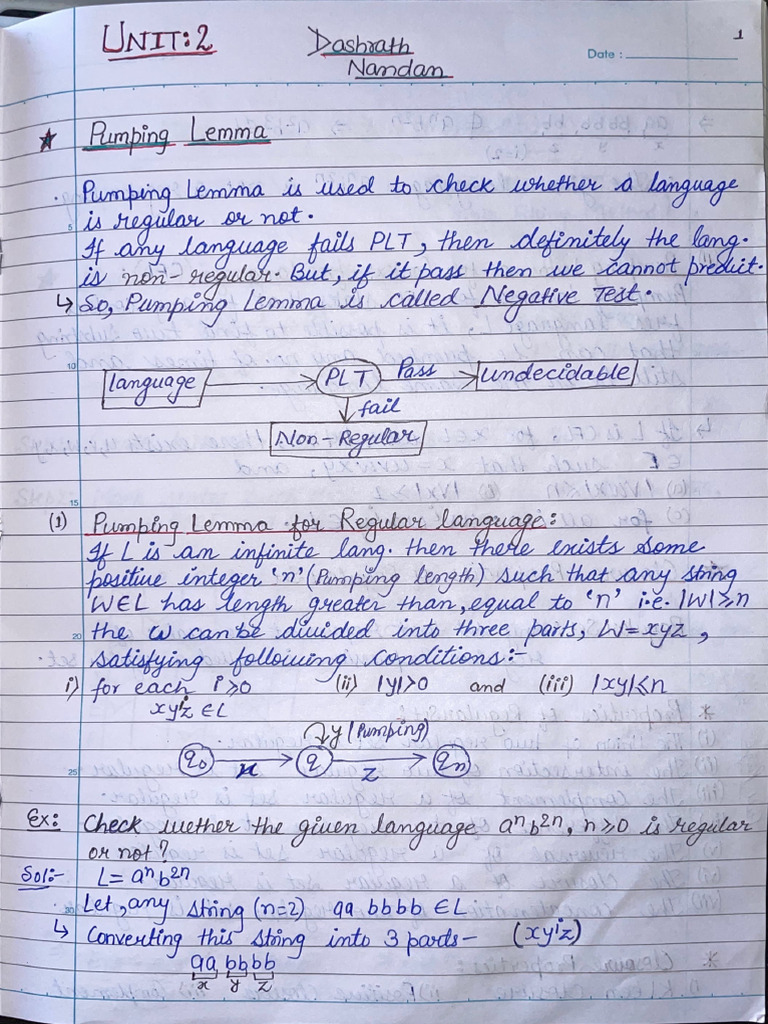 UNIT:2
Dashrath
Nandan
Date :
1
Pumping Lemma
Pumping Lemma is used to check whether a language
5
is regular or not.
If any language fails PLT, then definitely the lang.
is non-regular. But, if it pass then we cannot predict.
↳ So, Pumping Lemma is called Negative Test.
10
language → PLT Pass → Undecidable
↓ fail
Non-Regular
15
(1) Pumping Lemma for Regular language:
If L is an infinite lang. then there exists some
positive integer 'n' (Pumping length) such that any string
W∈L has length greater than, equal to 'n' i.e. |W|≥n
20 the w can be divided into three parts, W=xyz,
satisfying following conditions:-
i) for each i≥0 (ii) |y|>0 and (iii) |xy|≤n
xyⁱz ∈L
y (Pumping)
q₀ x → q z → qn
25
Ex: Check wether the given language aⁿb²ⁿ, n≥0 is regular
or not?
Sol:- L= aⁿb²ⁿ
30 Let, any string (n=2) aa bbbb ∈L
↳ Converting this string into 3 parts- (xyⁱz)
aa bb bb
x y z